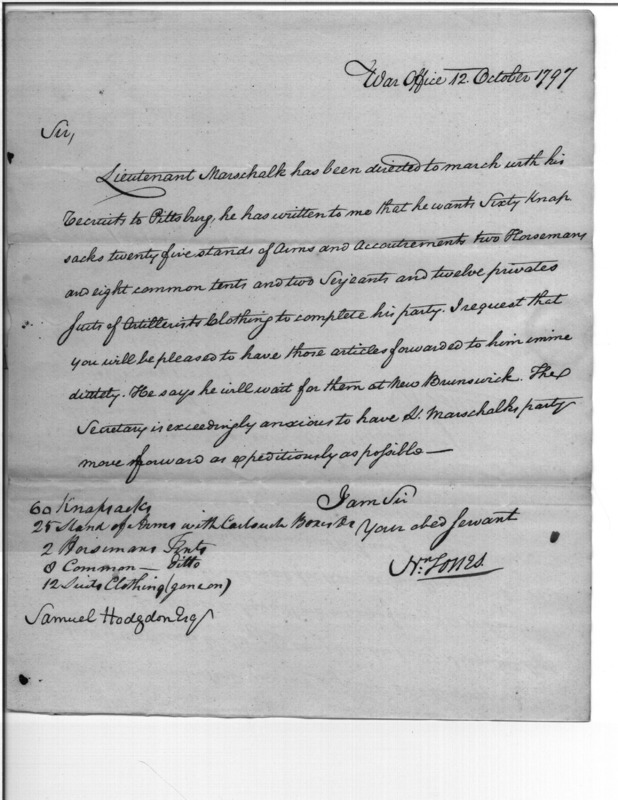 War Office 12 October 1797
Sir,
Lieutenant Marschalk has been directed to march with his
recruits to Pittsburg, he has written to me that he wants Sixty Knap
sacks twenty five stands of Arms and Accoutrements two Horsemans
and eight common tents and two Serjeants and twelve privates
suits of Artillerists Clothing to complete his party. I request that
you will be pleased to have those articles forwarded to him imme
diately. He says he will wait for them at New Brunswick. The
Secretary is exceedingly anxious to have Lt. Marschalks party
move forward as expeditiously as possible —
I am Sir
Your obed Servant
Wm Jones
60 Knapsacks
25 Stand of Arms with Cartouch Boxes &c
2 Horsemans Tents
8 Common — Ditto
12 Suits Clothing (gone on)
Samuel Hodgdon Esq